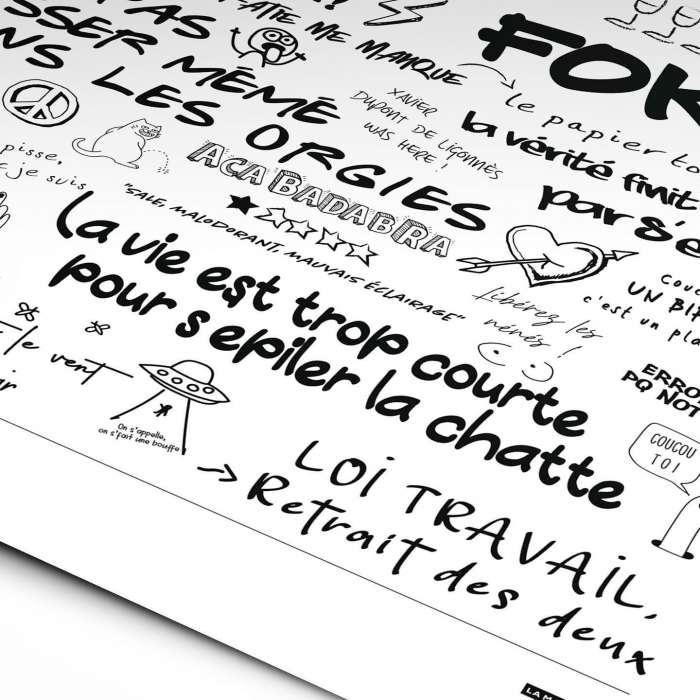 PAS
FATIE ME MANQUE
FOK
SSER MÉMÉ
NS LES ORGIES
XAVIER
DUPONT DE LIGONNÈS
WAS HERE !
le papier to
la vérité finit
par s'e
pisse,
je suis
ACABADABRA
"SALE, MALODORANT, MAUVAIS ÉCLAIRAGE"
La vie est trop courte
pour s epiler la chatte
Libérez les
nénés !
COUC
UN BIF
c'est un pla
ERRO
PQ NOT
COUCOU
TOI
le vent
ir
On s'appelle,
on s'fait une bouffe
→ LOI TRAVAIL,
Retrait des deux
LAM